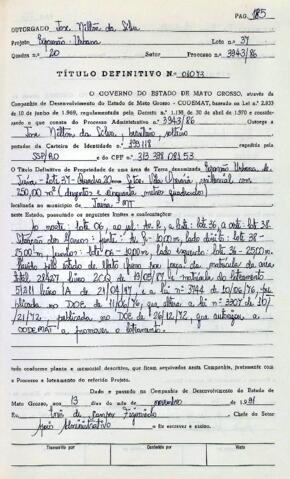 PAG. 185
OUTORGADO José Nilton da Silva
Projeto Expansão Urbana Lote n.° 37
Quadra n.° 20 Setor Processo n.° 3943/86
TÍTULO DEFINITIVO N.° 01073
O GOVERNO DO ESTADO DE MATO GROSSO, através da
Companhia de Desenvolvimento do Estado de Mato Grosso - CODEMAT, baseado na Lei n.° 2.033
10 de junho de 1969, regulamentado pelo Decreto n.° 1.138 de 30 de abril de 1970 e considerando
o que consta do Processo Administrativo n.° 3943/86 Outorga a
José Nilton da Silva, brasileiro, solteiro
portador da Carteira de Identidade n.° 393118 expedida pela
SSP/RO e do CPF n.° 313 398 081 53
O Título Definitivo de Propriedade de uma área de Terra denominada Expansão Urbana de
Juína - Lote 37 - Quadra 20 residencial com
250,00 m² (duzentos e cinquenta metros quadrados)
localizada no município de Juína - MT
neste Estado, possuindo os seguintes limites e confrontações:
ao norte: lote 06, ao sul: lote 36, lote 38
frente: 10,00 m, lado direito: lote 38 -
25,00 m fundos: lote 06 - 10,00 m, lado esquerdo: lote 36 - 25,00 m.
matrícula da área
matrícula do loteamento
21/04/87, e a lei n° 3744 de 10/06/76, pu-
blicada no DOE de 11/06/76, que altera a lei n° 3307 de
21/72, publicada no DOE de 26/12/72, que autoriza a
CODEMAT a promover o loteamento.
tudo conforme planta e memorial descritivo, que ficam arquivados nesta Companhia, juntamente com
o Processo e loteamento do referido Projeto.
Dado e passado na Companhia de Desenvolvimento do Estado de
Mato Grosso, aos 13 dias do mês de novembro de 1.991
Eu, de Campos Figueiredo Chefe do Setor
Apoio Administrativo fiz escrever e assino.
Transcrito por Conferido por Visto